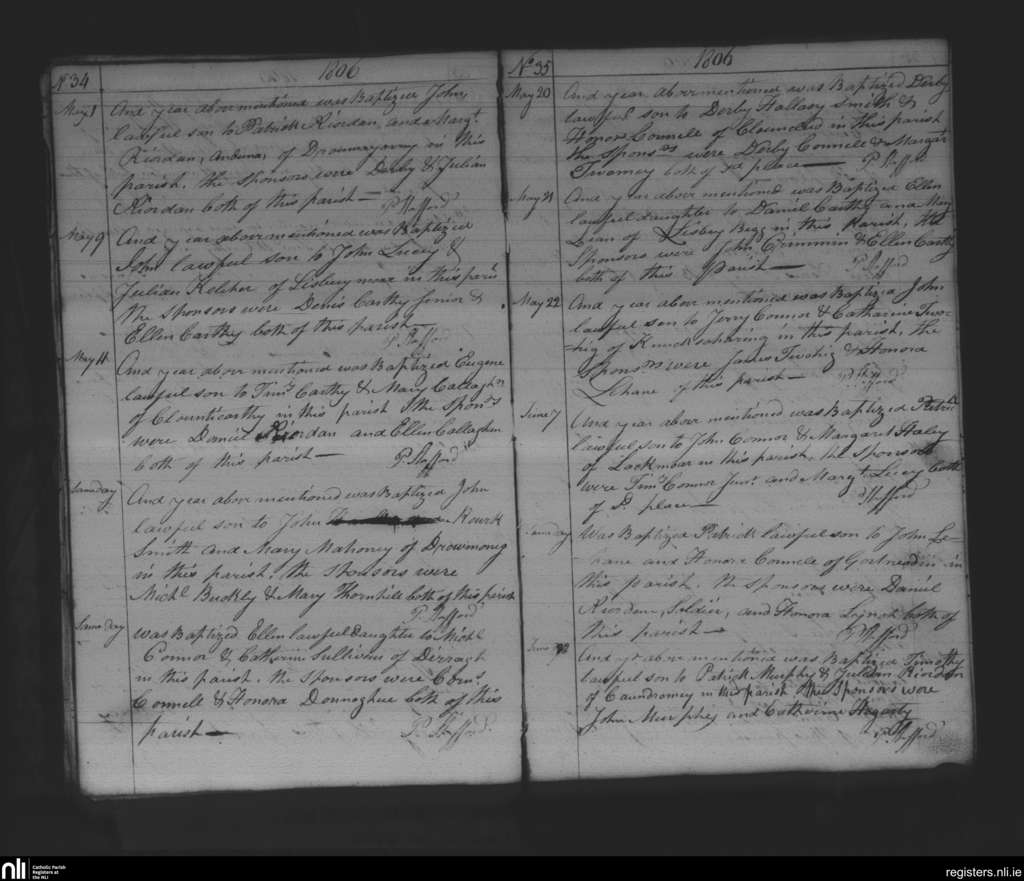 No 34
1806
May 1
And year above mentioned was Baptized John
lawful son to Patrick Riordan, and Margt
Riordan, of in this
parish. the sponsors were Darby & Julian
Riordan both of this parish —
P. Stafford
May 9
And year above mentioned was Baptized
John lawful son to John Lucey &
Julian Kelcher of more in this paris
The Sponsors were Denis Carthy Junior &
Ellen Carthy both of this parish
P. Stafford
May 11
And year above mentioned was Baptized Eugene
lawful son to Timy Carthy & Mary Callaghn
of Clounticarthy in this parish the Sponrs
were Daniel Riordan and Ellen Callaghan
both of this parish —
P. Stafford
Same day
And year above mentioned was Baptized John
lawful son to John Rourk
Smith and Mary Mahoney of Drowmoney
in this parish. the Sponsors were
Michl Buckly & Mary Thornhile both of this parish
P. Stafford
Same day
was Baptized Ellen lawful Daughter to Michl
Connor & Catherine Sullivan of Dirragh
in this parish. the Sponsors were Corns
Connell & Honora Donnoghue both of this
parish —
P. Stafford
No 35
1806
May 20
And year above mentioned was Baptized Derby
lawful son to Derby Hallasy Smith &
Honora Connell of in this parish
the Sponsrs were Derby Connell & Margaret
Twomey both of sd place —
P. Stafford
May 21
And year above mentioned was Baptized Ellen
lawful daughter to Daniel Carthy and Mary
Lean of Begg in this Parish, the
Sponsors were John Crimmin & Ellen Carthy
both of this parish —
P. Stafford
May 22
And year above mentioned was Baptized John
lawful son to Jerry Connor & Catharine Two-
hig of Knocksaharing in this parish, the
Sponsrs were James Twohig & Honora
Lehane of this parish —
P. Stafford
June 7
And year above mentioned was Baptized Patrick
lawful son to John Connor & Margaret Haley
of Lackmbar in this parish, the Sponsors
were Timy Connor Junr and Margt Lucey both
of sd place —
P. Stafford
Same day
Was Baptized Patrick lawful son to John Le-
hane and Honora Connell of in
this parish. the Sponsors were Daniel
Riordan, Soldier, and Honora both of
this parish —
P. Stafford
June
And yr above mentioned was Baptized Timothy
lawful son to Patrick Murphy & Julian Riordan
of Caundromey in this parish the Sponsors were
John Murphy and Catherine Hegarty
P. Stafford
nli
Catholic Parish
Registers at
the NLI
registers.nli.ie